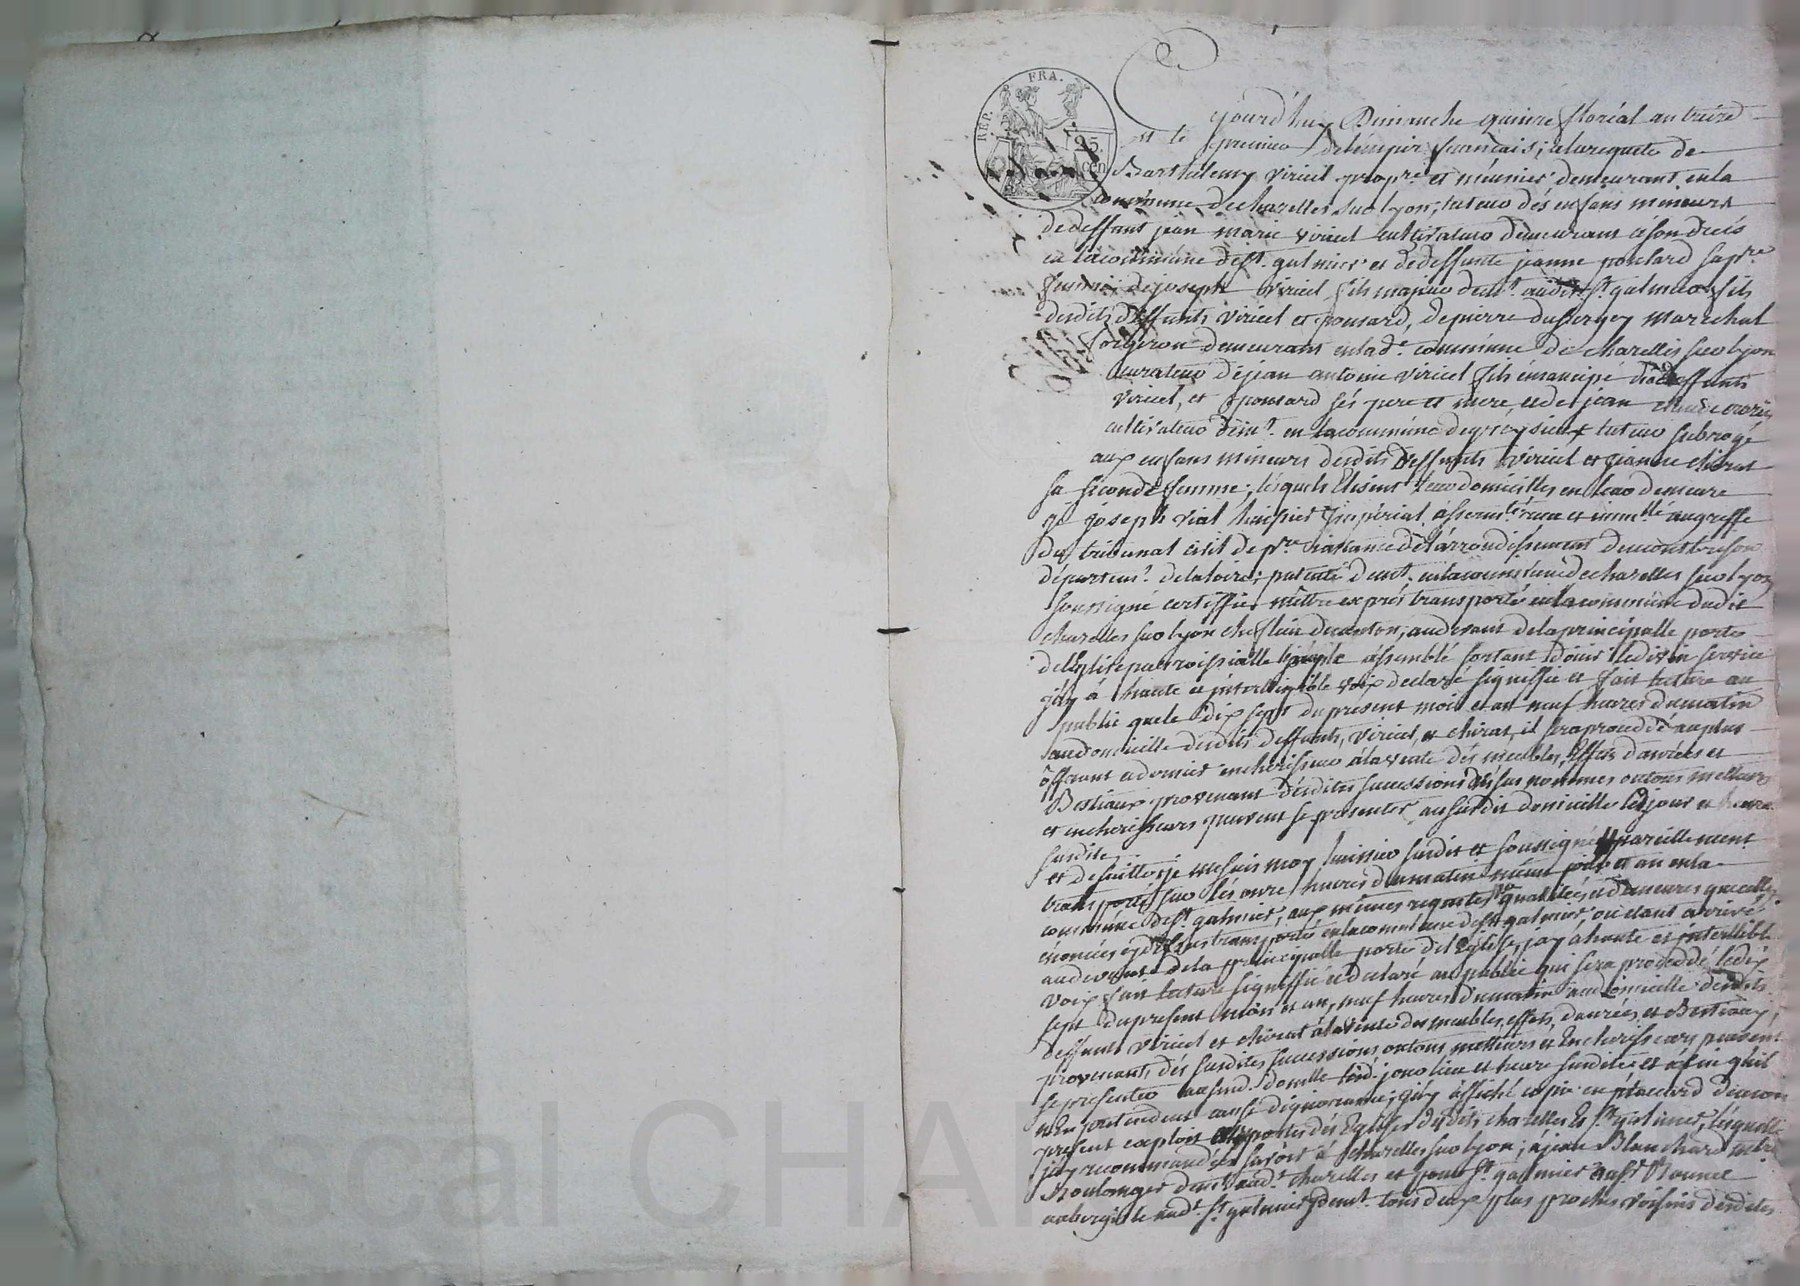 REP. FRA.
25.
cen
Cejourd'huy Dimanche quinze floréal an treize
et le premier de lempire francais; a la requete de
Barthelemy viricel propre. et meunier demeurant en la
commune de chazelles sur lyon, tuteur dés enfans mineurs
de deffunt jean marie viricel cultivateur demeurant
en la commune de st. galmier et de deffunte jeanne ponsard sa pre
femme; de joseph viricel fils majeur demt. audit st. galmier fils
desdits deffunts viricel et ponsard, de pierre marechal
forgeron demeurant en lade. commune de chazelles sur lyon
curateur de jean antoine viricel fils émancipé deffunts
viricel, et ponsard sés pere et mere, et de jean claude
cultivateur demt. en la commune de tuteur subrogé
aux enfans mineurs desdits deffunts viricel et jeanne chirat
sa seconde femme; lesquels élisent leur domicilles en leur demeure
je joseph vial huissier impérial et immlé au greffe
du tribunal civil de pre. instance de larrondissement de montbrison
départemt. de la loire; patenté demt. en la commune de chazelles sur lyon
soussigné certiffie mêtre exprés transporté en la commune dudit
chazelles sur lyon chef lieu de canton; au devant de la principalle porte
de léglise parroissialle le peuple assemblé sortant douir le divin service
jay à haute et intelligible voix declaré signiffié et fait lecture au
public que le dix sept du present mois et an neuf heures du matin
au domicille desdits deffunts, viricel, et chirat, il sera procedé au plus
offrant et dernier encherisseur à la vente dés meubles, effets danrées et
Bestiaux provenant desdites successions nommes ou tous metteurs
et encherisseurs peuvent se presenter au susdit domicille lesd jour et heure
susdite
et de suitte je me suis moy huissier susdit et soussigné pareillement
transporté sur lés onze heures du matin même jour et an en la
commune de st. galmier, aux mêmes requetes qualitées et demeures que celles
énoncées transporté en la commune de st galmier ou etant arrivé
au devant de la principalle porte de léglise, jay à haute et intellible
voix fait lecture signiffié et declaré au public qui sera procedé le dix
sept du present mois et an, neuf heures du matin au domicille desdits
deffunts viricel et chirat à la vente des meubles, effets, danrées, et Bestiaux,
provenants dés susdites successions ou tous metteurs et encherisseurs peuvent
se presenter au susd. domille lesd. jour lieu et heure susdite et afin quil
nen pretendent cause dignorance; jay affiché copie en placard de mon
present exploit aux portes dés églises desdits chazelles et st. galmier, lesquelles
jay recommandées savoir à chazelles sur lyon; à jean Blanchard
Boulanger demt audt. chazelles et pour st. galmier
aubergiste audt. st. galmier demt. tous deux plus proches voisins desdites
sal CHA